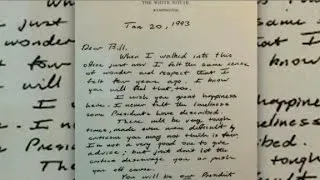 THE WHITE HOUSE
WASHINGTON
Jan 20, 1993
Dear Bill,
When I walked into this
office just now I felt the same sense
of wonder and respect that I
felt four years ago. I know
you will feel that, too.
I wish you great happiness
here. I never felt the loneliness
some Presidents have described.
There will be very tough
times, made even more difficult by
criticism you may not think is fair.
I'm not a very good one to give
advice; but just don't let the
critics discourage you or push
you off course.
You will be our President